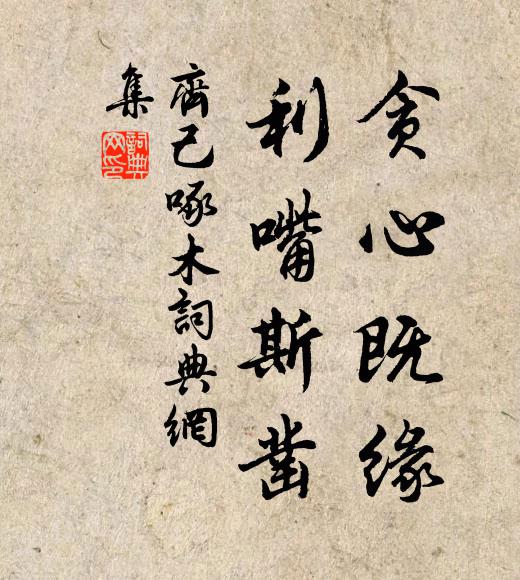 贪心既缘
利嘴斯凿
齊己啄木詞典網
集
詞典
网印